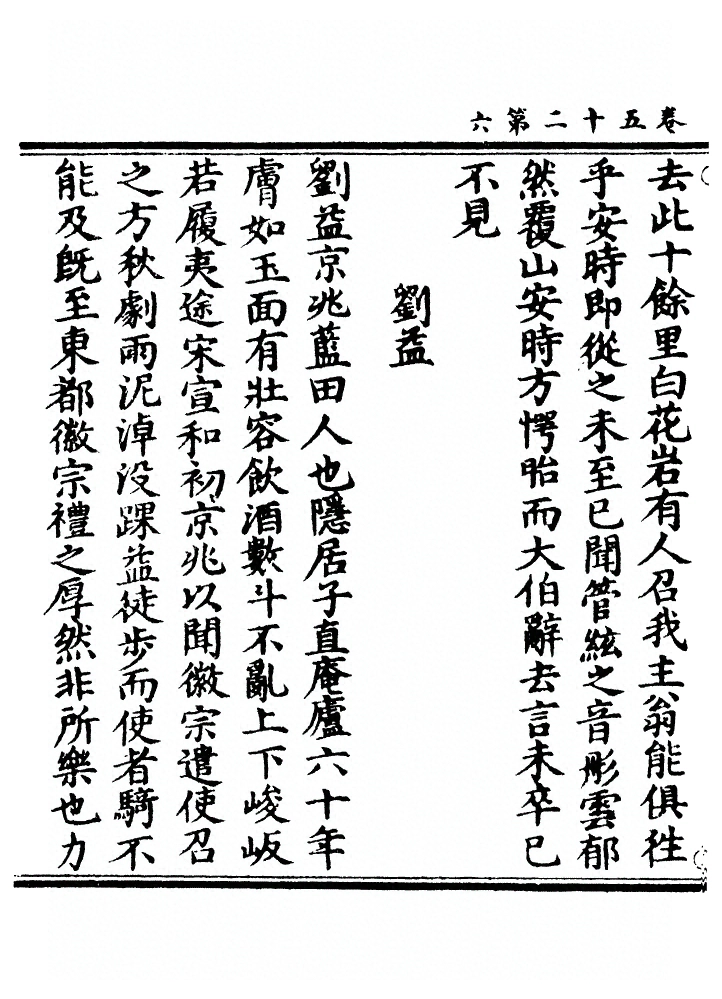 卷五十二第六
去此十餘里白花岩有人召我主翁能俱往
乎安時即從之未至已聞管絃之音彤雲郁
然覆山安時方愕眙而大伯辭去言未卒已
不見
劉益
劉益京兆藍田人也隱居子直庵廬六十年
膚如玉面有壯容飲酒數斗不亂上下峻岅
若履夷途宋宣和初京兆以聞徽宗遣使召
之方秋劇雨泥淖没踝益徒步而使者騎不
能及旣至東都徽宗禮之厚然非所樂也力